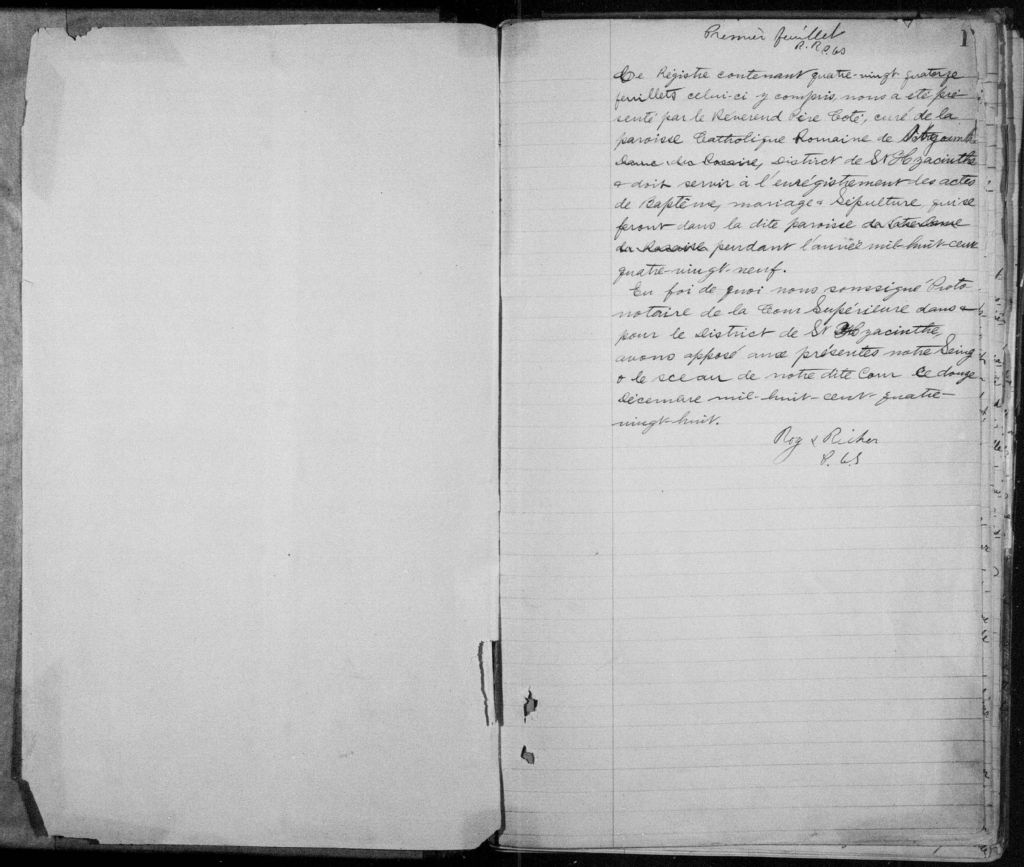 Premier feuillet
R. & R. P.C.S
1
Ce Régistre contenant quatre-vingt quatorze
feuillets celui-ci y compris, nous a été pré-
senté par le Révérend Père Coté, curé de la
paroisse Catholique Romaine de
Dame du Rosaire, District de St Hyacinthe
& doit servir à l'enrégistrement des actes
de Baptême, mariage & Sépulture, qui se
feront dans la dite paroisse de Notre Dame
du Rosaire pendant l'année mil-huit-cent
quatre-vingt-neuf.
En foi de quoi nous soussigné Proto-
notaire de la Cour Supérieure dans &
pour le District de St Hyacinthe,
avons apposé aux présentes notre Seing
& le sceau de notre dite Cour Ce douze
Décembre mil-huit-cent-quatre-
vingt-huit.
Roy & Richer
P.C.S